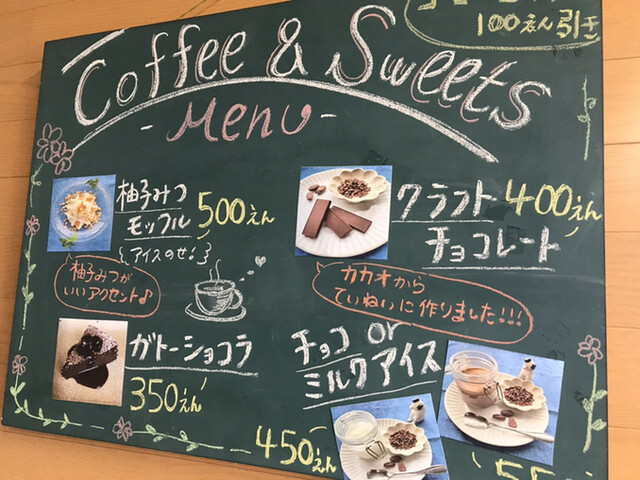 100えん引き
Coffee & Sweets
-Menu-
柚子みつ
モッフル 500えん
{アイスのせ!}
柚子みつが
いいアクセント♪
クラフト 400えん
チョコレート
カカオから
ていねいに作りました!!!
ガトーショコラ
350えん
チョコ or
ミルクアイス
450えん